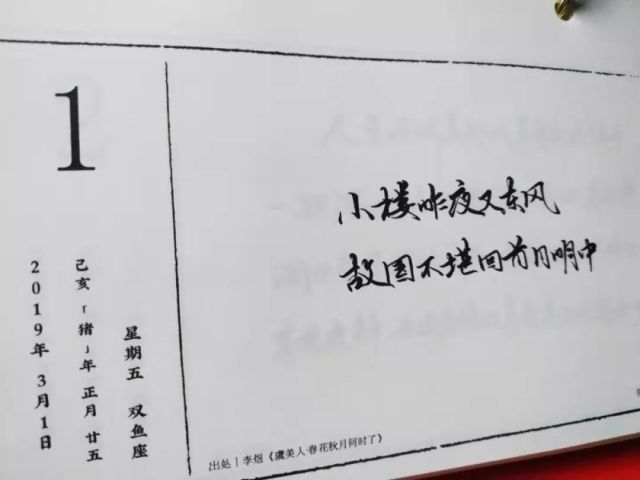 1
2019年3月1日
己亥「猪」年 正月 廿五
星期五 双鱼座
小楼昨夜又东风
故国不堪回首月明中
出处 | 李煜《虞美人·春花秋月何时了》